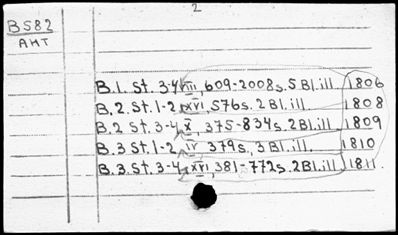 2
B582
AHT
B.1. St. 3-4 VIII, 609-2008s. 5 Bl. ill. 1806
B.2. St. 1-2 XVI, 576s. 2 Bl. ill. 1808
B.2 St. 3-4 X, 375-834s. 2Bl. ill. 1809
B.3 St. 1-2 IV 379s, 3 Bl. ill. 1810
B.3. St. 3-4 XVI, 381-772s. 2Bl. ill 1811.